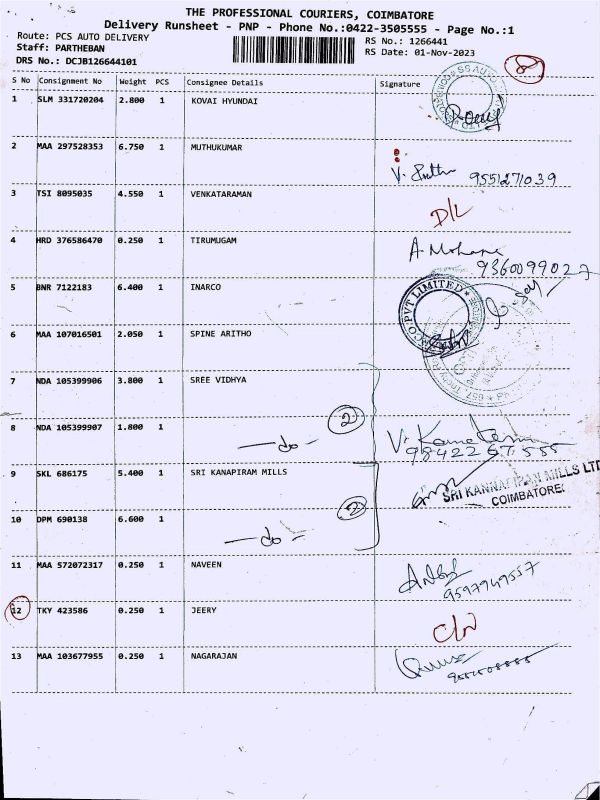 THE PROFESSIONAL COURIERS, COIMBATORE
Delivery Runsheet - PNP - Phone No.:0422-3505555 - Page No.:1
Route: PCS AUTO DELIVERY
RS No.: 1266441
Staff: PARTHEBAN
RS Date: 01-Nov-2023
DRS No.: DCJB126644101
8
S No Consignment No Weight PCS Consignee Details Signature
1 SLM 331720204 2.800 1 KOVAI HYUNDAI
2 MAA 297528353 6.750 1 MUTHUKUMAR
9551271039
3 TSI 8095035 4.550 1 VENKATARAMAN
D/L
4 HRD 376586470 0.250 1 TIRUMUGAM
A. Mohane
9360099027
5 BNR 7122183 6.400 1 INARCO
PVT LIMITED
6 MAA 107016501 2.050 1 SPINE ARITHO
7 NDA 105399906 3.800 1 SREE VIDHYA
2
8 NDA 105399907 1.800 1 — do -
9 SKL 686175 5.400 1 SRI KANAPIRAM MILLS
SRI KANNAPIRAN MILLS LTD
COIMBATORE
2
10 DPM 690138 6.600 1 — do —
11 MAA 572072317 0.250 1 NAVEEN
9597949557
12 TKY 423586 0.250 1 JEERY
C/N
13 MAA 103677955 0.250 1 NAGARAJAN